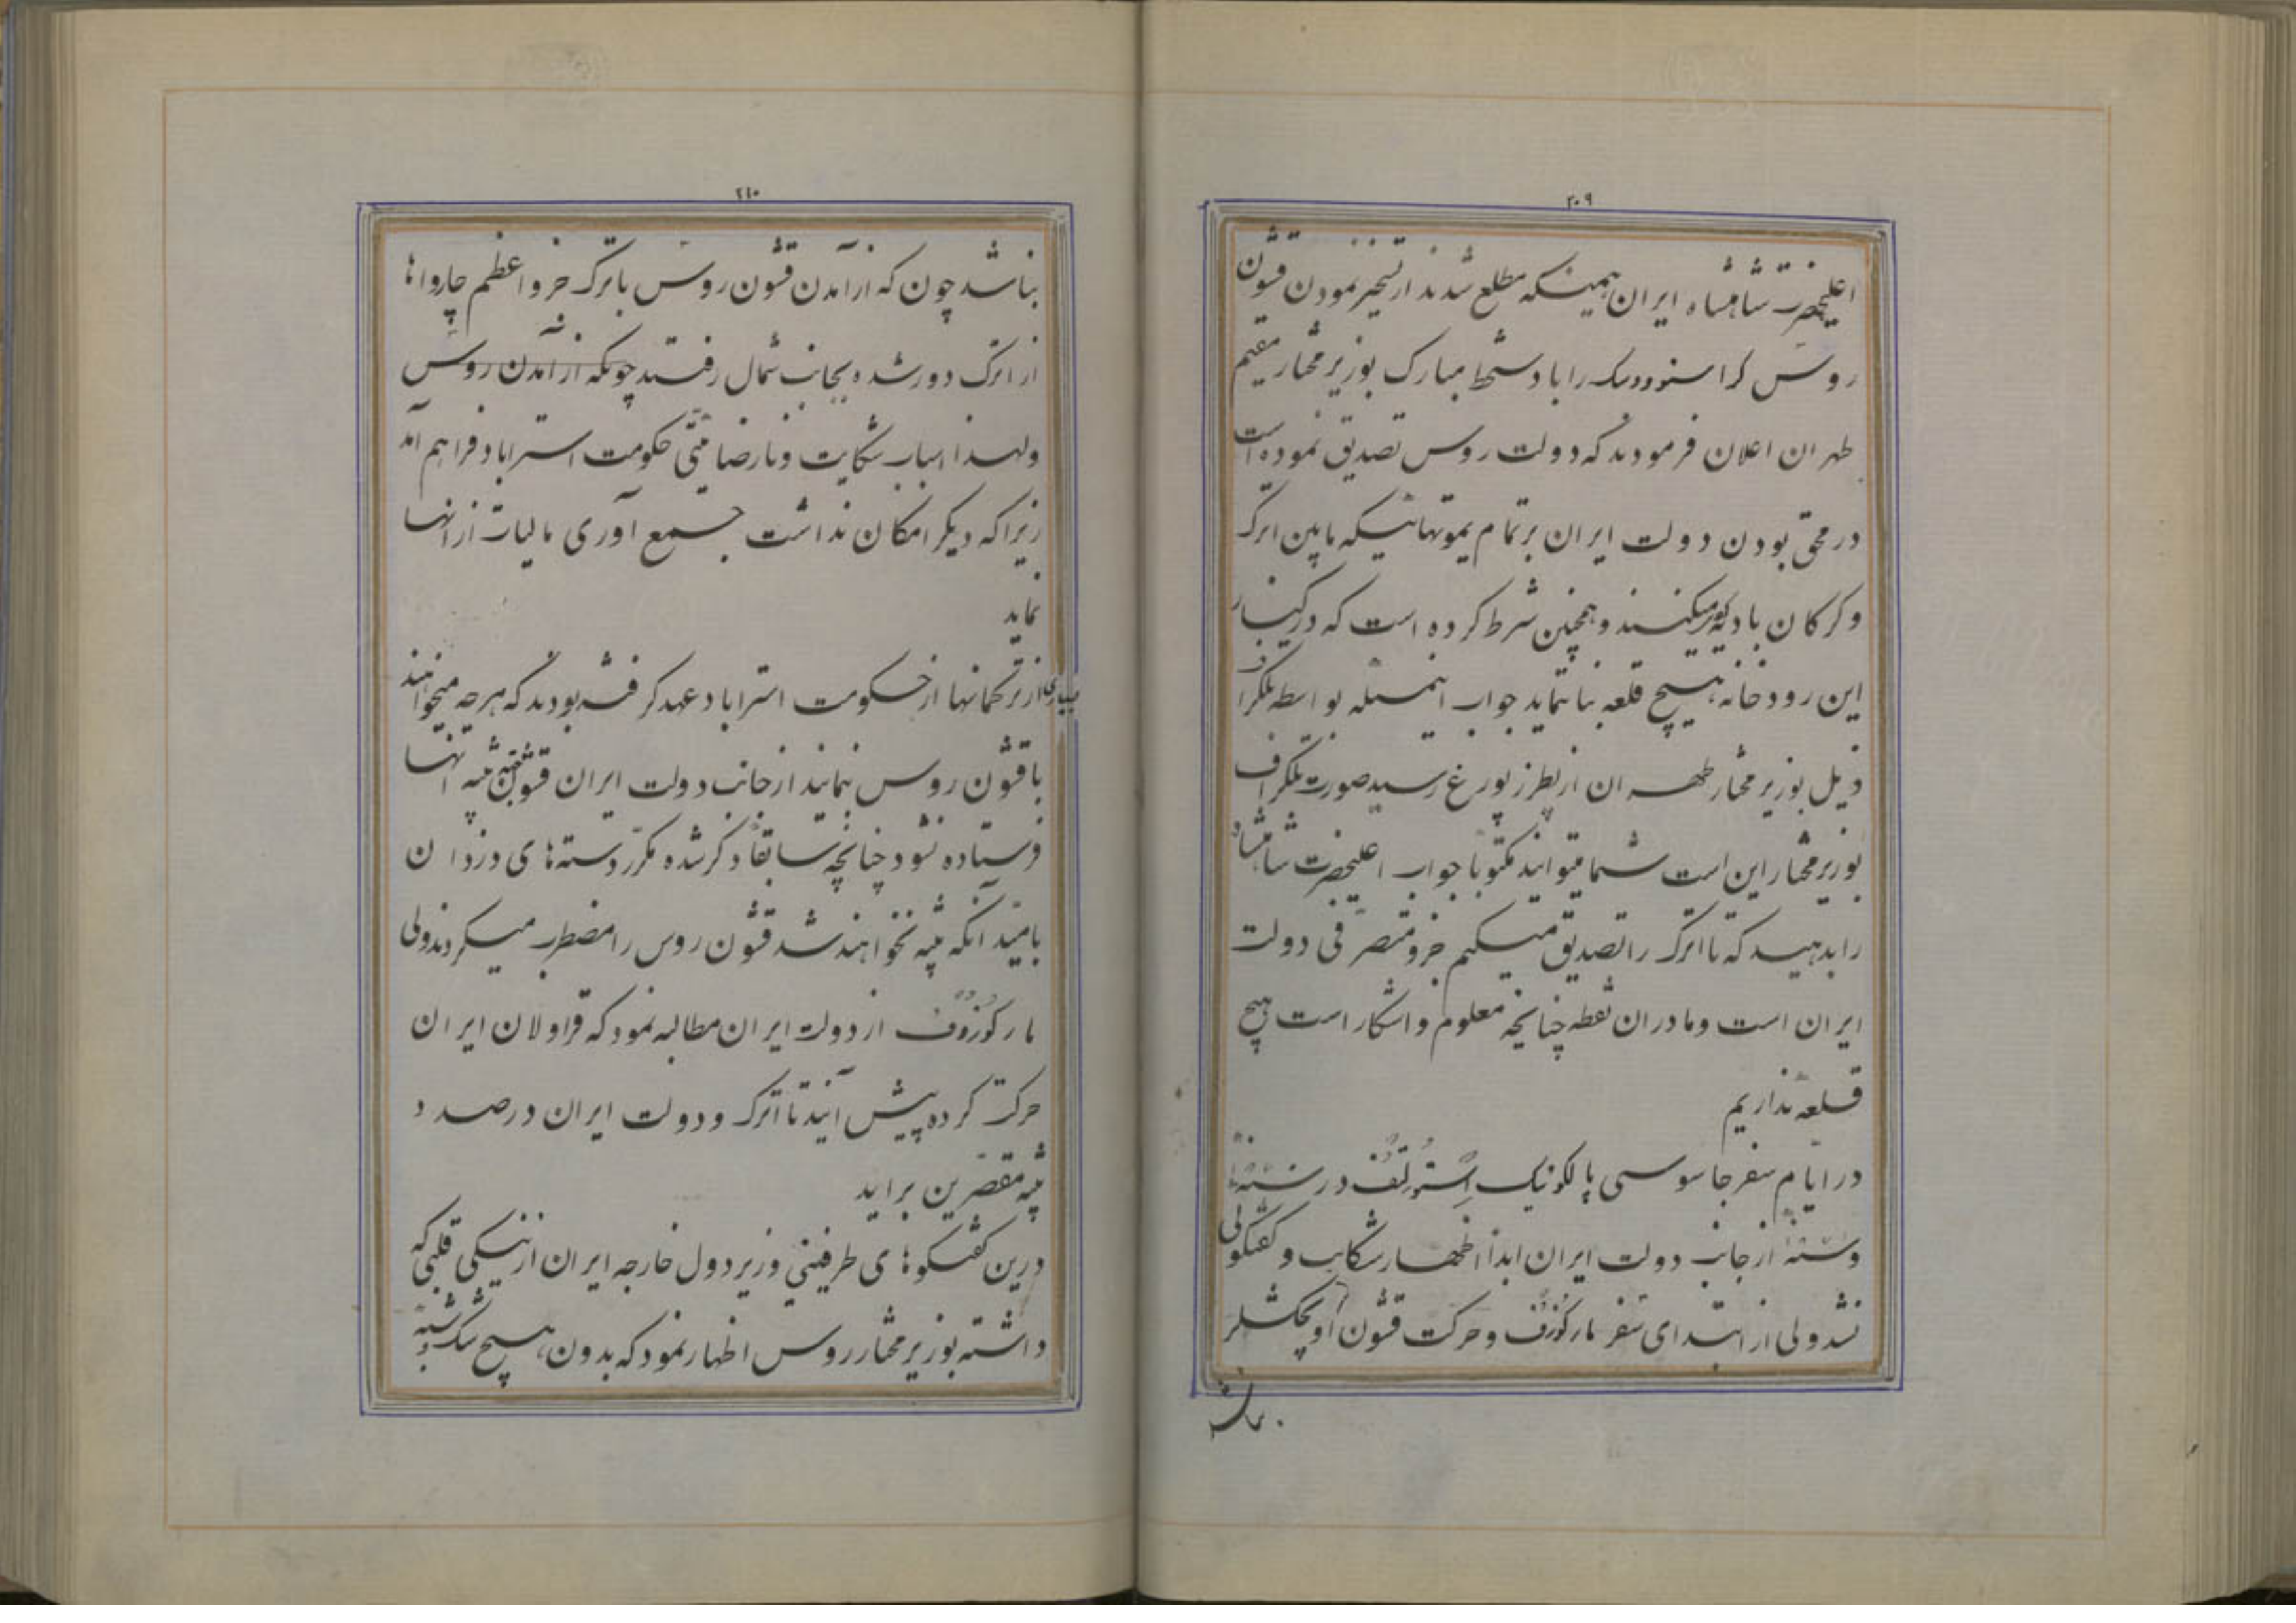 ۲۰۹
اعلیحضرت شاهنشاه ایران همینکه مطلع شدند از تسخیر نمودن قشون
روس کراسنوودسک را با دستخط مبارک بوزیر مختار مقیم
طهران اعلان فرمودند که دولت روس تصدیق نموده است
در محق بودن دولت ایران بر تمام یموتهائیکه مابین اترک
و کرکان بادیه میکنند و همچنین شرط کرده است که در کنار
این رودخانه هیچ قلعه بنا ننماید جواب اینمسئله بواسطه تلکراف
ذیل بوزیر مختار طهران از پطرزبورغ رسید صورت تلکراف
بوزیر مختار این است شما میتوانید مکتوباً جواب اعلیحضرت شاهنشاه
را بدهید که ما اترک را تصدیق میکنم جزو متصرفی دولت
ایران است و ما در ان نقطه چنانچه معلوم و اشکار است هیچ
قلعه نداریم
در ایام سفر جاسوسی پالکونیک استولتف در سنه
و سنه از جانب دولت ایران ابداً اظهار شکایت و کفتکوئی
نشد ولی از ابتدای سفر مارکوزوف و حرکت قشون او بچکشلر
۲۱۰
بناشد چون که از آمدن قشون روس باترک جزو اعظم چارواها
از اترک دور شده بجانب شمال رفتند چونکه از آمدن روس
ولهذا اسباب شکایت و نارضامتی حکومت استراباد فراهم آمد
زیرا که دیکر امکان نداشت جمع آوری مالیات از انها
نماید
بسیاری از ترکمانها از حکومت استراباد عهد کرفته بودند که هرچه میخواهند
با قشون روس بنمایند از جانب دولت ایران قشون تنبیه انها
فرستاده نشود چنانچه سابقاً ذکر شده مکرر دسته های دزدان
بامید آنکه تنبیه نخواهند شد قشون روس را مضطرب میکردند ولی
مارکوزوف از دولت ایران مطالبه نمود که قراولان ایران
حرکت کرده پیش آیند تا اترک و دولت ایران در صدد
تنبیه مقصرین براید
درین کفتکوهای طرفینی وزیر دول خارجه ایران از نیکی قلبی که
داشته بوزیر مختار روس اظهار نمود که بدون هیچ شک و شبهه